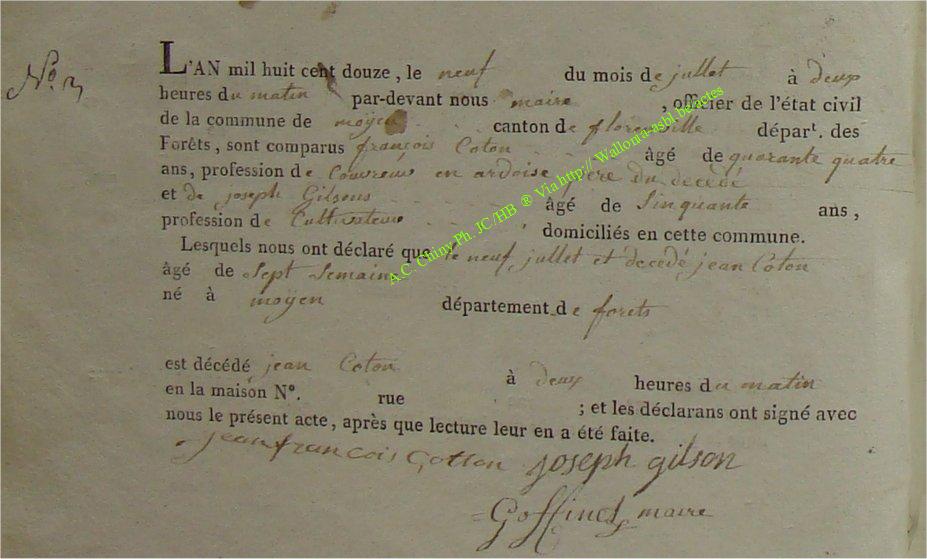 No. 3
L'AN mil huit cent douze, le neuf du mois de jullet à deux
heures du matin par-devant nous maire, officier de l'état civil
de la commune de moÿen canton de florenville départ. des
Forêts, sont comparus françois Coton âgé de quarante quatre
ans, profession de Couvreur en ardoise père du decedé
et de joseph Gilsons âgé de Sinquante ans,
profession de Cultivateur domiciliés en cette commune.
Lesquels nous ont déclaré que le neuf jullet et décedé jean Coton
âgé de Sept Semain
né à moÿen département de forets
est décédé jean Coton à deux heures du matin
en la maison N°. rue ; et les déclarans ont signé avec
nous le présent acte, après que lecture leur en a été faite.
jean françois Cotton joseph gilson
Goffinet maire
A.C. Chiny Ph. JC/HB ® Via http// Wallonia-asbl.be/actes